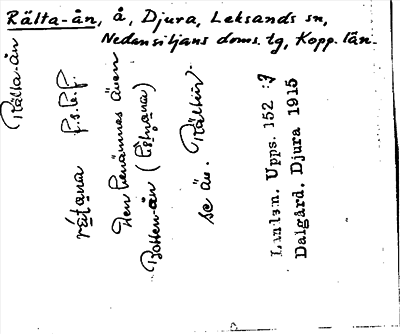 Rälta-ån, å, Djura, Leksands sn,
Nedansiljans doms. tg, Kopp. län.
Rälta-ån
f.s.b.f.
Den benämnes även
Botten-ån
se än. Rältån
Landsm. Upps. 152 :7
Dalgård. Djura 1915